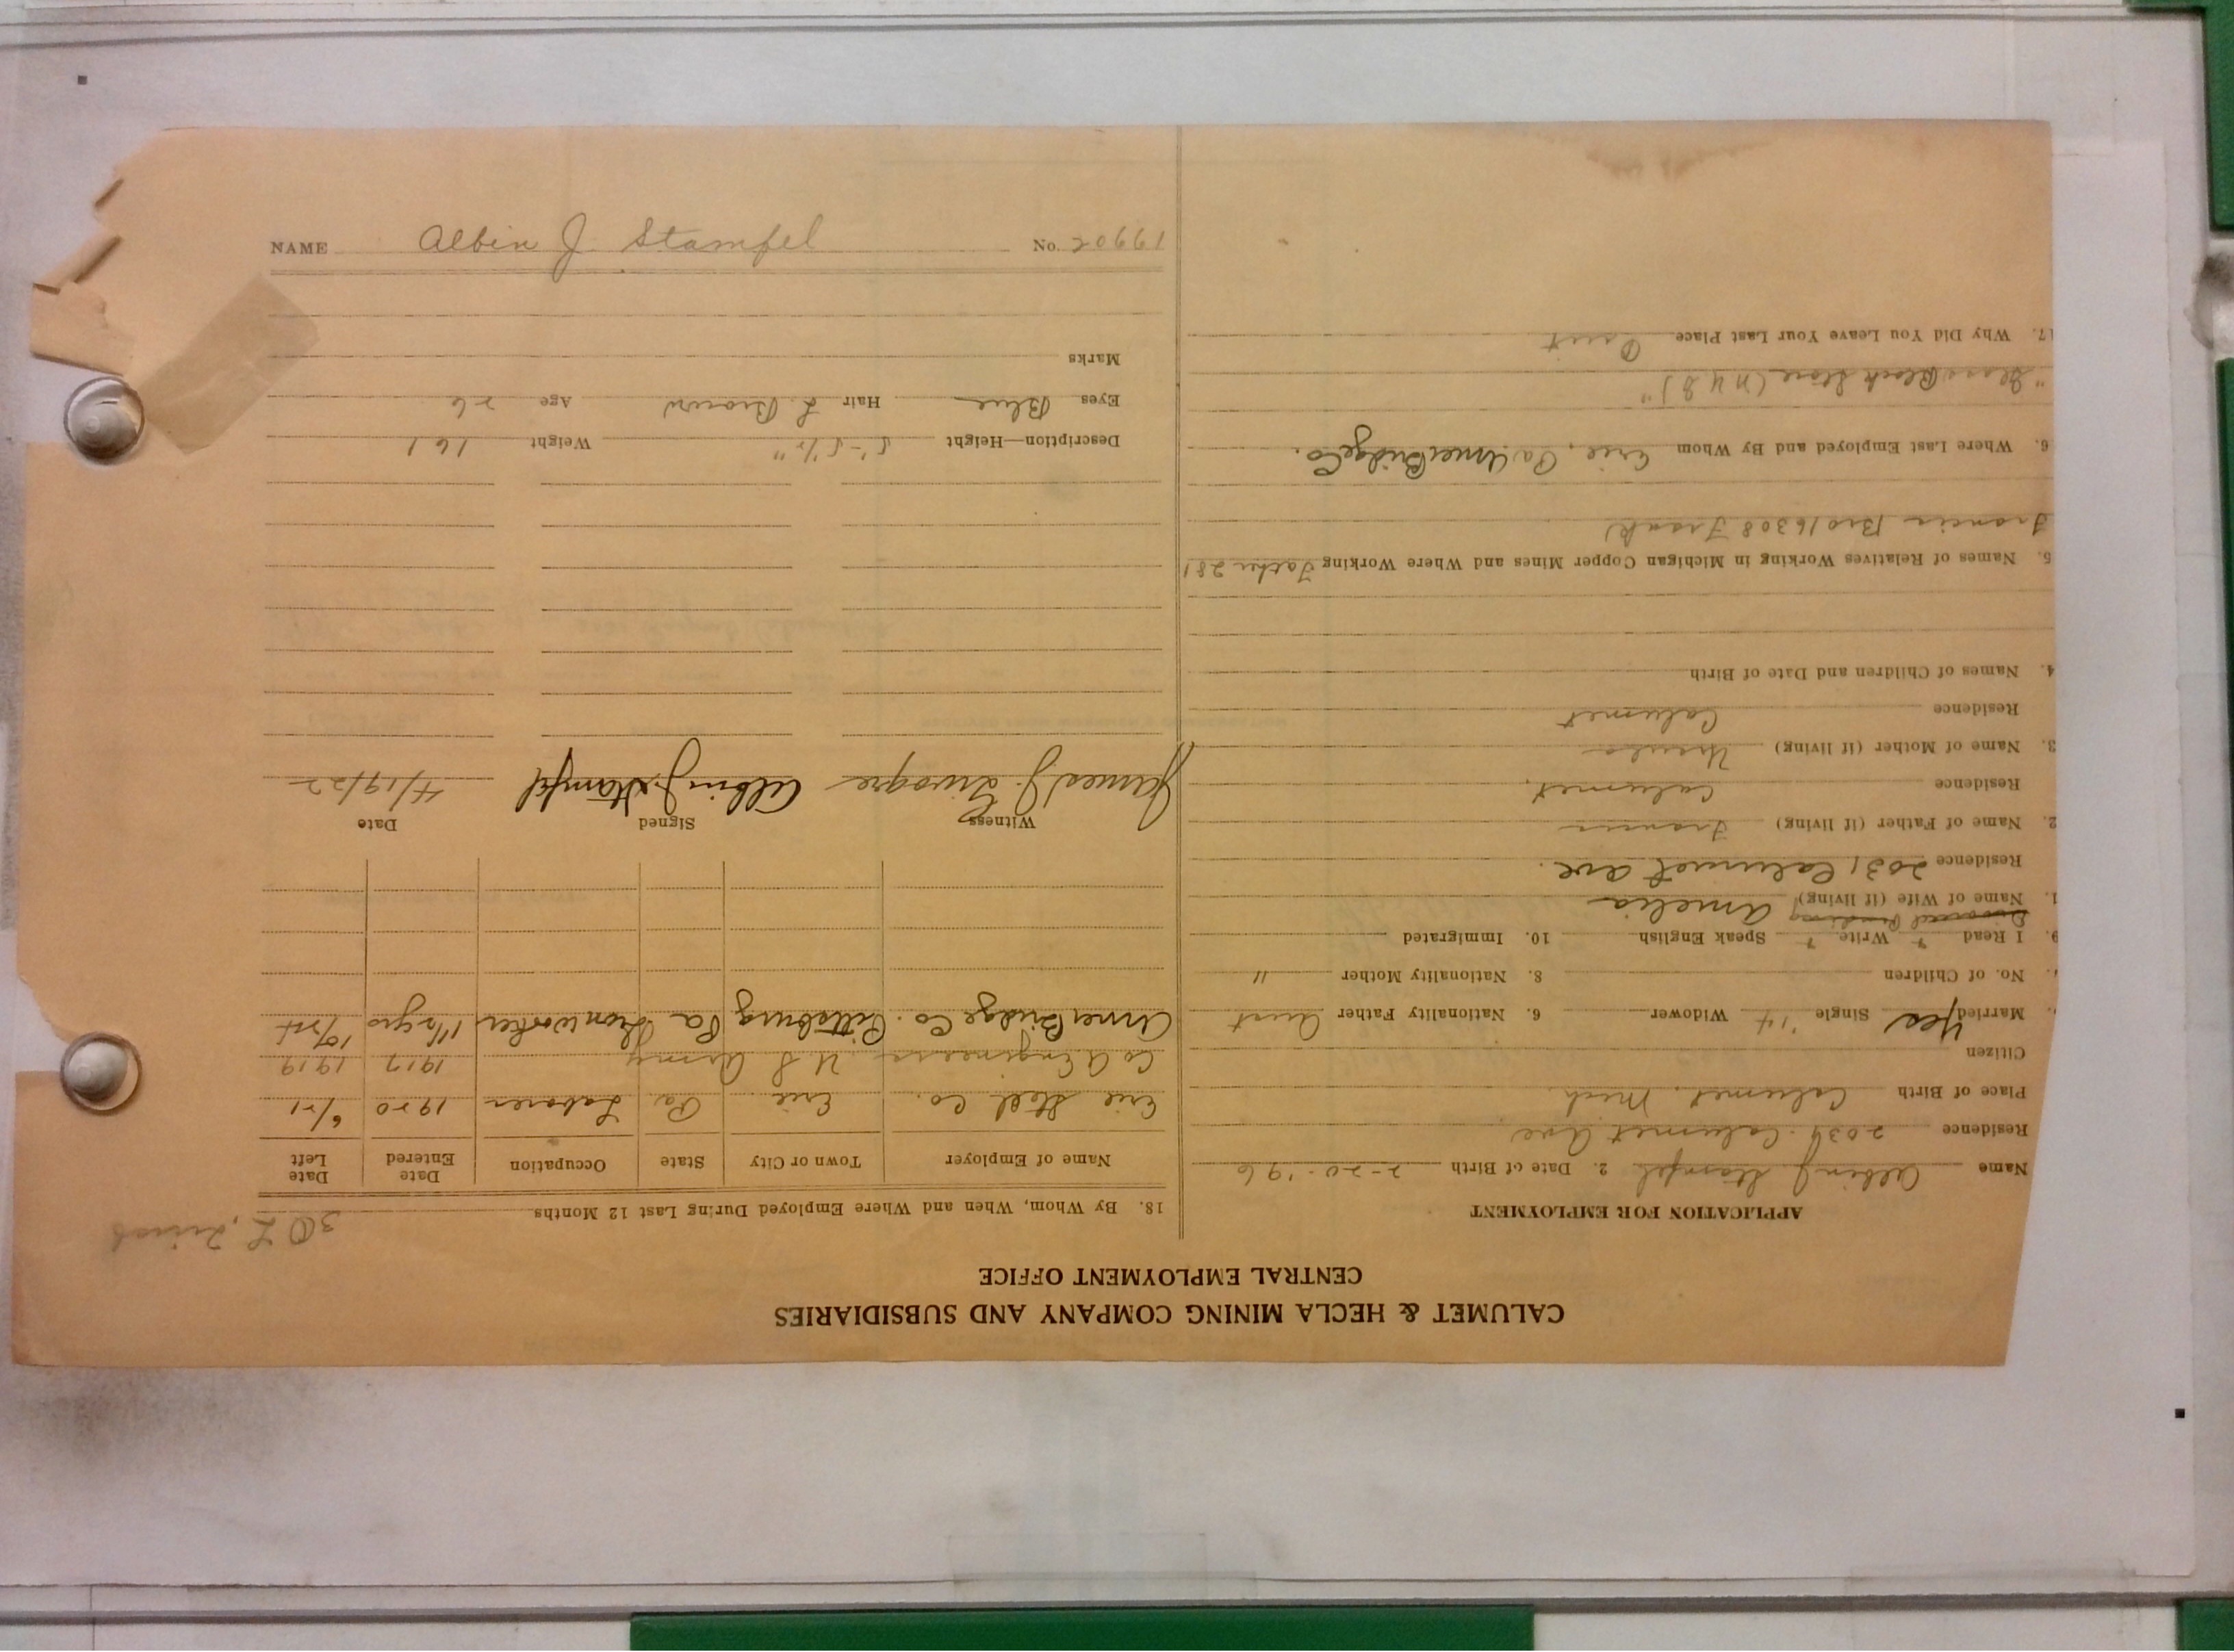 CALUMET & HECLA MINING COMPANY AND SUBSIDIARIES
CENTRAL EMPLOYMENT OFFICE
APPLICATION FOR EMPLOYMENT
Name Albin J Stampfel 2. Date of Birth 2-20-'96
Residence 2034 Calumet Ave
Place of Birth Calumet, Mich.
Citizen
Married Yes Single '14 Widower 6. Nationality Father Aust
No. of Children 8. Nationality Mother "
9. I Read + Write + Speak English 10. Immigrated
Divorced Pending
1. Name of Wife (if living) Amelia
Residence 2031 Calumet Ave.
2. Name of Father (if living) Francis
Residence Calumet,
3. Name of Mother (if living) Ursula
Residence Calumet
4. Names of Children and Date of Birth
5. Names of Relatives Working in Michigan Copper Mines and Where Working Father 281
Francis Bro 16308 Frank
6. Where Last Employed and By Whom Erie, Pa Amer Bridge Co.
" Glass Block Store
17. Why Did You Leave Your Last Place Quit
30 L,
18. By Whom, When and Where Employed During Last 12 Months
Name of Employer Town or City State Occupation Date Entered Date Left
Erie Steel Co. Erie Pa Laborer 1920 6/21
Co A Engineers U S Army 1917 1919
Amer Bridge Co. Pittsburg Pa Iron worker
Witness Signed Date
James J. Albin J. Stampfel 4/19/22
Description—Height 5'-5 1/2" Weight 161
Eyes Blue Hair L. Brown Age 26
Marks
NAME Albin J Stampfel No. 20661